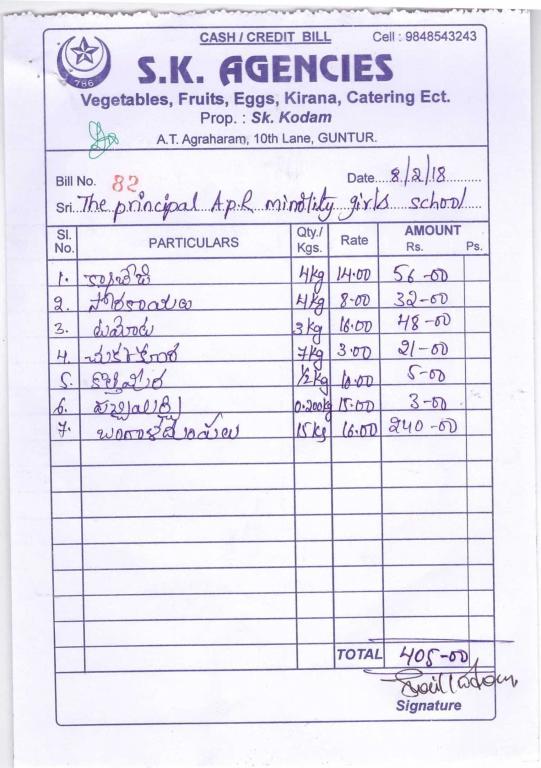 CASH / CREDIT BILL Cell : 9848543243
786
S.K. AGENCIES
Vegetables, Fruits, Eggs, Kirana, Catering Ect.
Prop. : Sk. Kodam
A.T. Agraharam, 10th Lane, GUNTUR.
Bill No. 82 Date 8/2/18
Sri. The principal A.p.R minority girls school
Sl. No. PARTICULARS Qty./ Kgs. Rate AMOUNT Rs. Ps.
1. క్యాబేజి 4kg 14.00 56-00
2. 4kg 8.00 32-00
3. టమోటా 3kg 16.00 48-00
4. 7kg 3.00 21-00
5. కొత్తిమీర 1/2kg 10.00 5-00
6. 0.200kg 15.00 3-00
7. 15kg 16.00 240-00
TOTAL 405-00
Signature